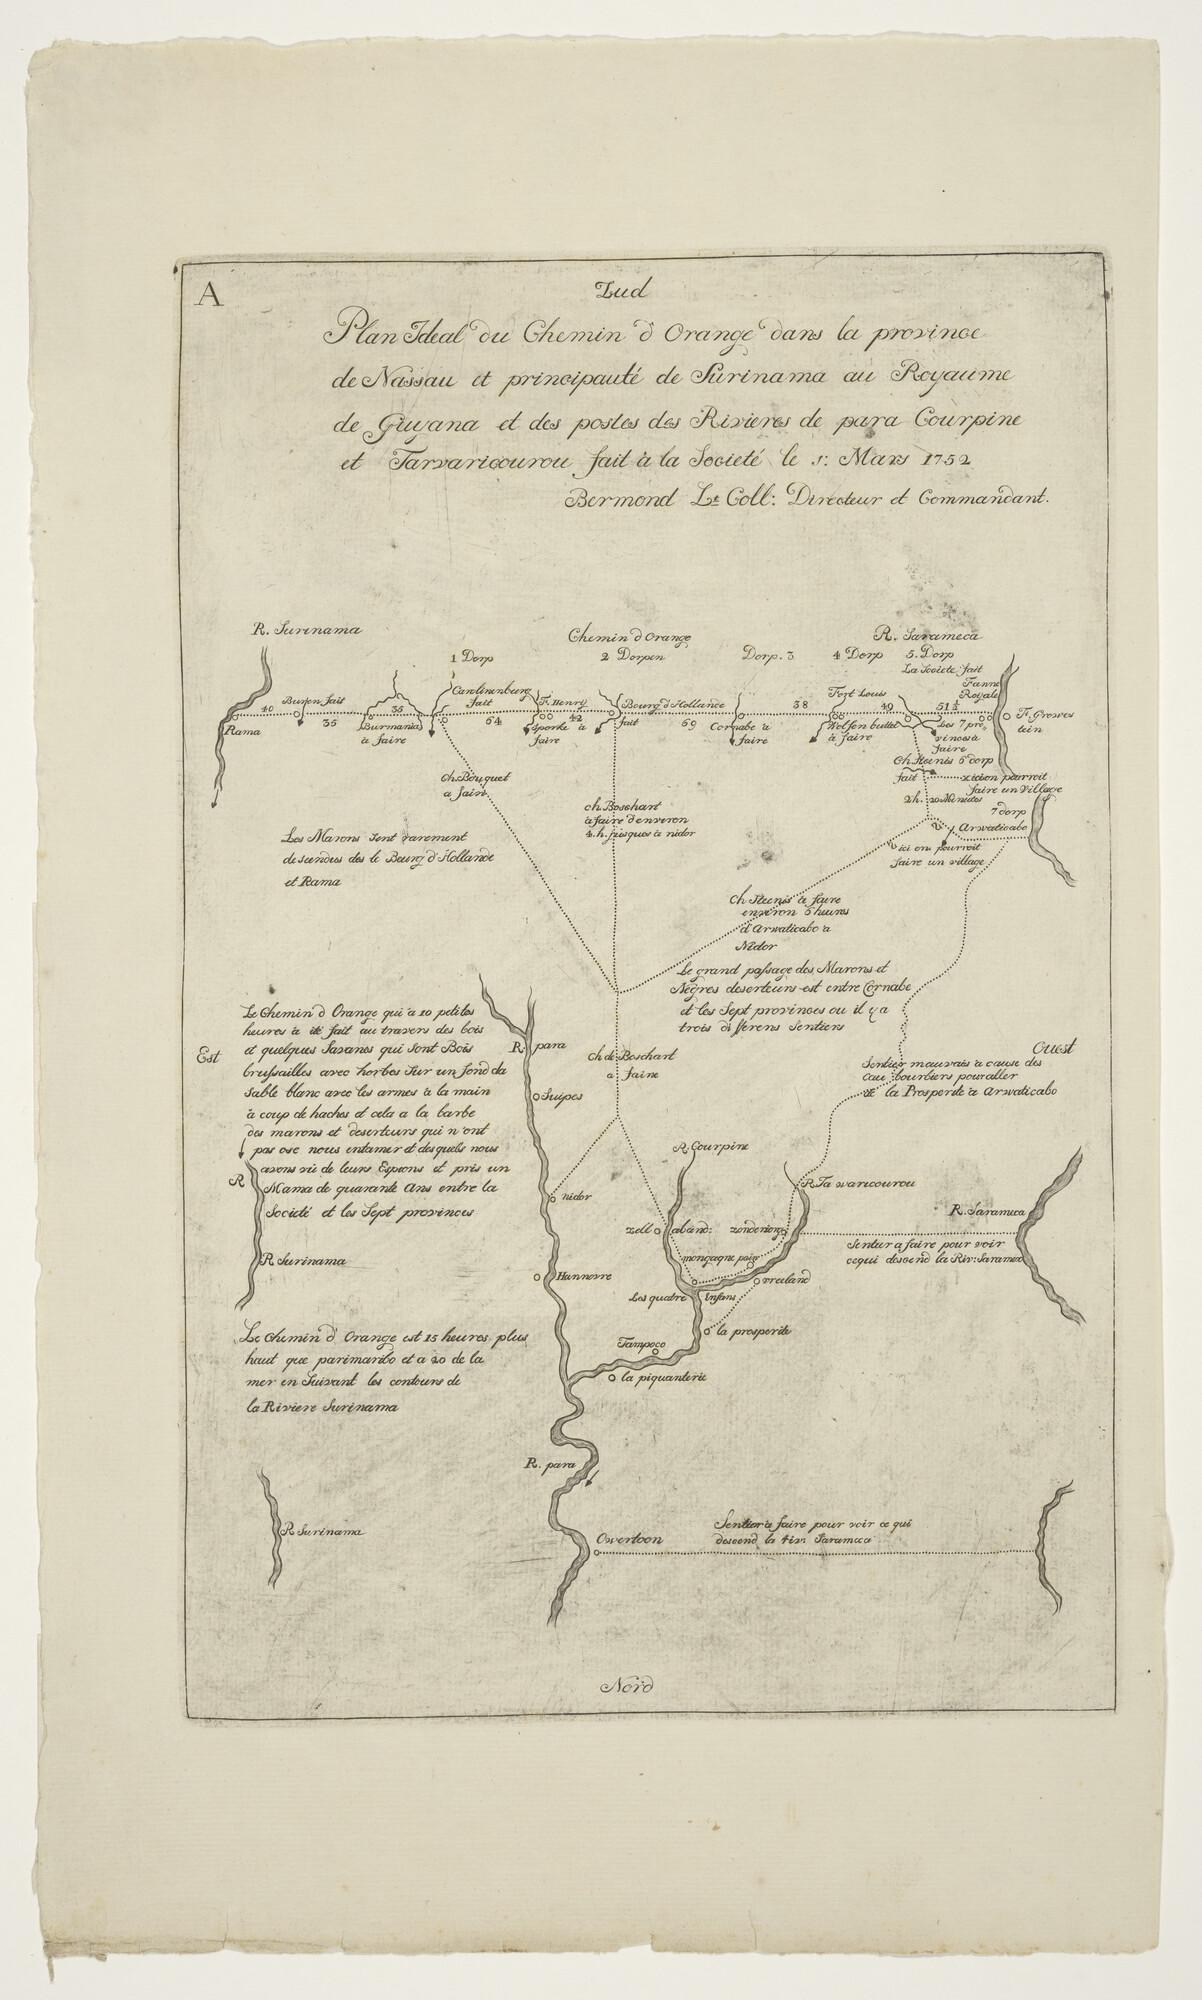 A
Zud
Plan Ideal du Chemin d'Orange dans la province
de Nassau et principauté de Surinama au Royaume
de Guyana et des postes des Rivieres de para Courpine
et Tarvaricourou fait à la Societé le 1: Mars 1752
Bermond Lt Coll: Directeur et Commandant.
R. Surinama
Chemin d'Orange
R. Sarameca
1 Dorp
2 Dorpen
Dorp. 3
4 Dorp
5. Dorp
La Societe fait
Fanne
Royale
Carolinenburg
fait
Buren fait
F. Henry
Bourg d'Hollande
fait
Fort Louis
40
35
35
64
42
69
38
49
51 1/2
Rama
Burmania
à faire
Sporke à
faire
Cornabe à
faire
Wolfenbuttel
à faire
Les 7 pro=
vinces à
faire
F. Groves
tein
Ch. Steenis 6 dorp
fait
ici on pourroit
faire un Village
2h. 20 Minutes
7 dorp
Arwaticabo
ici on pourroit
faire un village
Ch. Bouquet
a faire
ch. Boschart
à faire d'environ
4. h. jusques à nidor
Les Marons sont rarement
descendus des le Bourg d'Hollande
et Rama
Ch Steenis à faire
environ 6 heures
d'Arwaticabo à
Nidor
Le grand passage des Marons et
Negres deserteurs est entre Cornabe
et les Sept provinces ou il y a
trois differens Sentiers
Le Chemin d'Orange qui a 10 petites
heures à été fait au travers des bois
et quelques Savanes qui sont Bois
brussailles avec herbes sur un fond da
sable blanc avec les armes à la main
à coup de haches et cela a la barbe
des marons et deserteurs qui n'ont
pas ose nous entamer et desquels nous
avons vü de leurs Espions et pris un
Mama de quarante Ans entre la
Societé et les Sept provinces
Est
Ouest
R. para
Ch de Boschart
a faire
Sentier mauvais à cause des
eau bourbiers pour aller
de la Prosperité à Arwaticabo
Suipes
R. Courpine
R. Ta waricourou
R
nidor
zell
aband:
zonderzorg
R. Sarameca
Sentier a faire pour voir
cequi descend la Riv: Sarameca
R Surinama
Hannovre
mongagne poix
vreeland
Les quatre Infans
la prosperite
Le Chemin d'Orange est 15 heures plus
haut que parimaribo et a 20 de la
mer en Suivant les contours de
la Riviere Surinama
Tampoco
la piquanterie
R. para
R Surinama
Overtoon
Sentier à faire pour voir ce qui
descend la riv: Sarameca
Nord